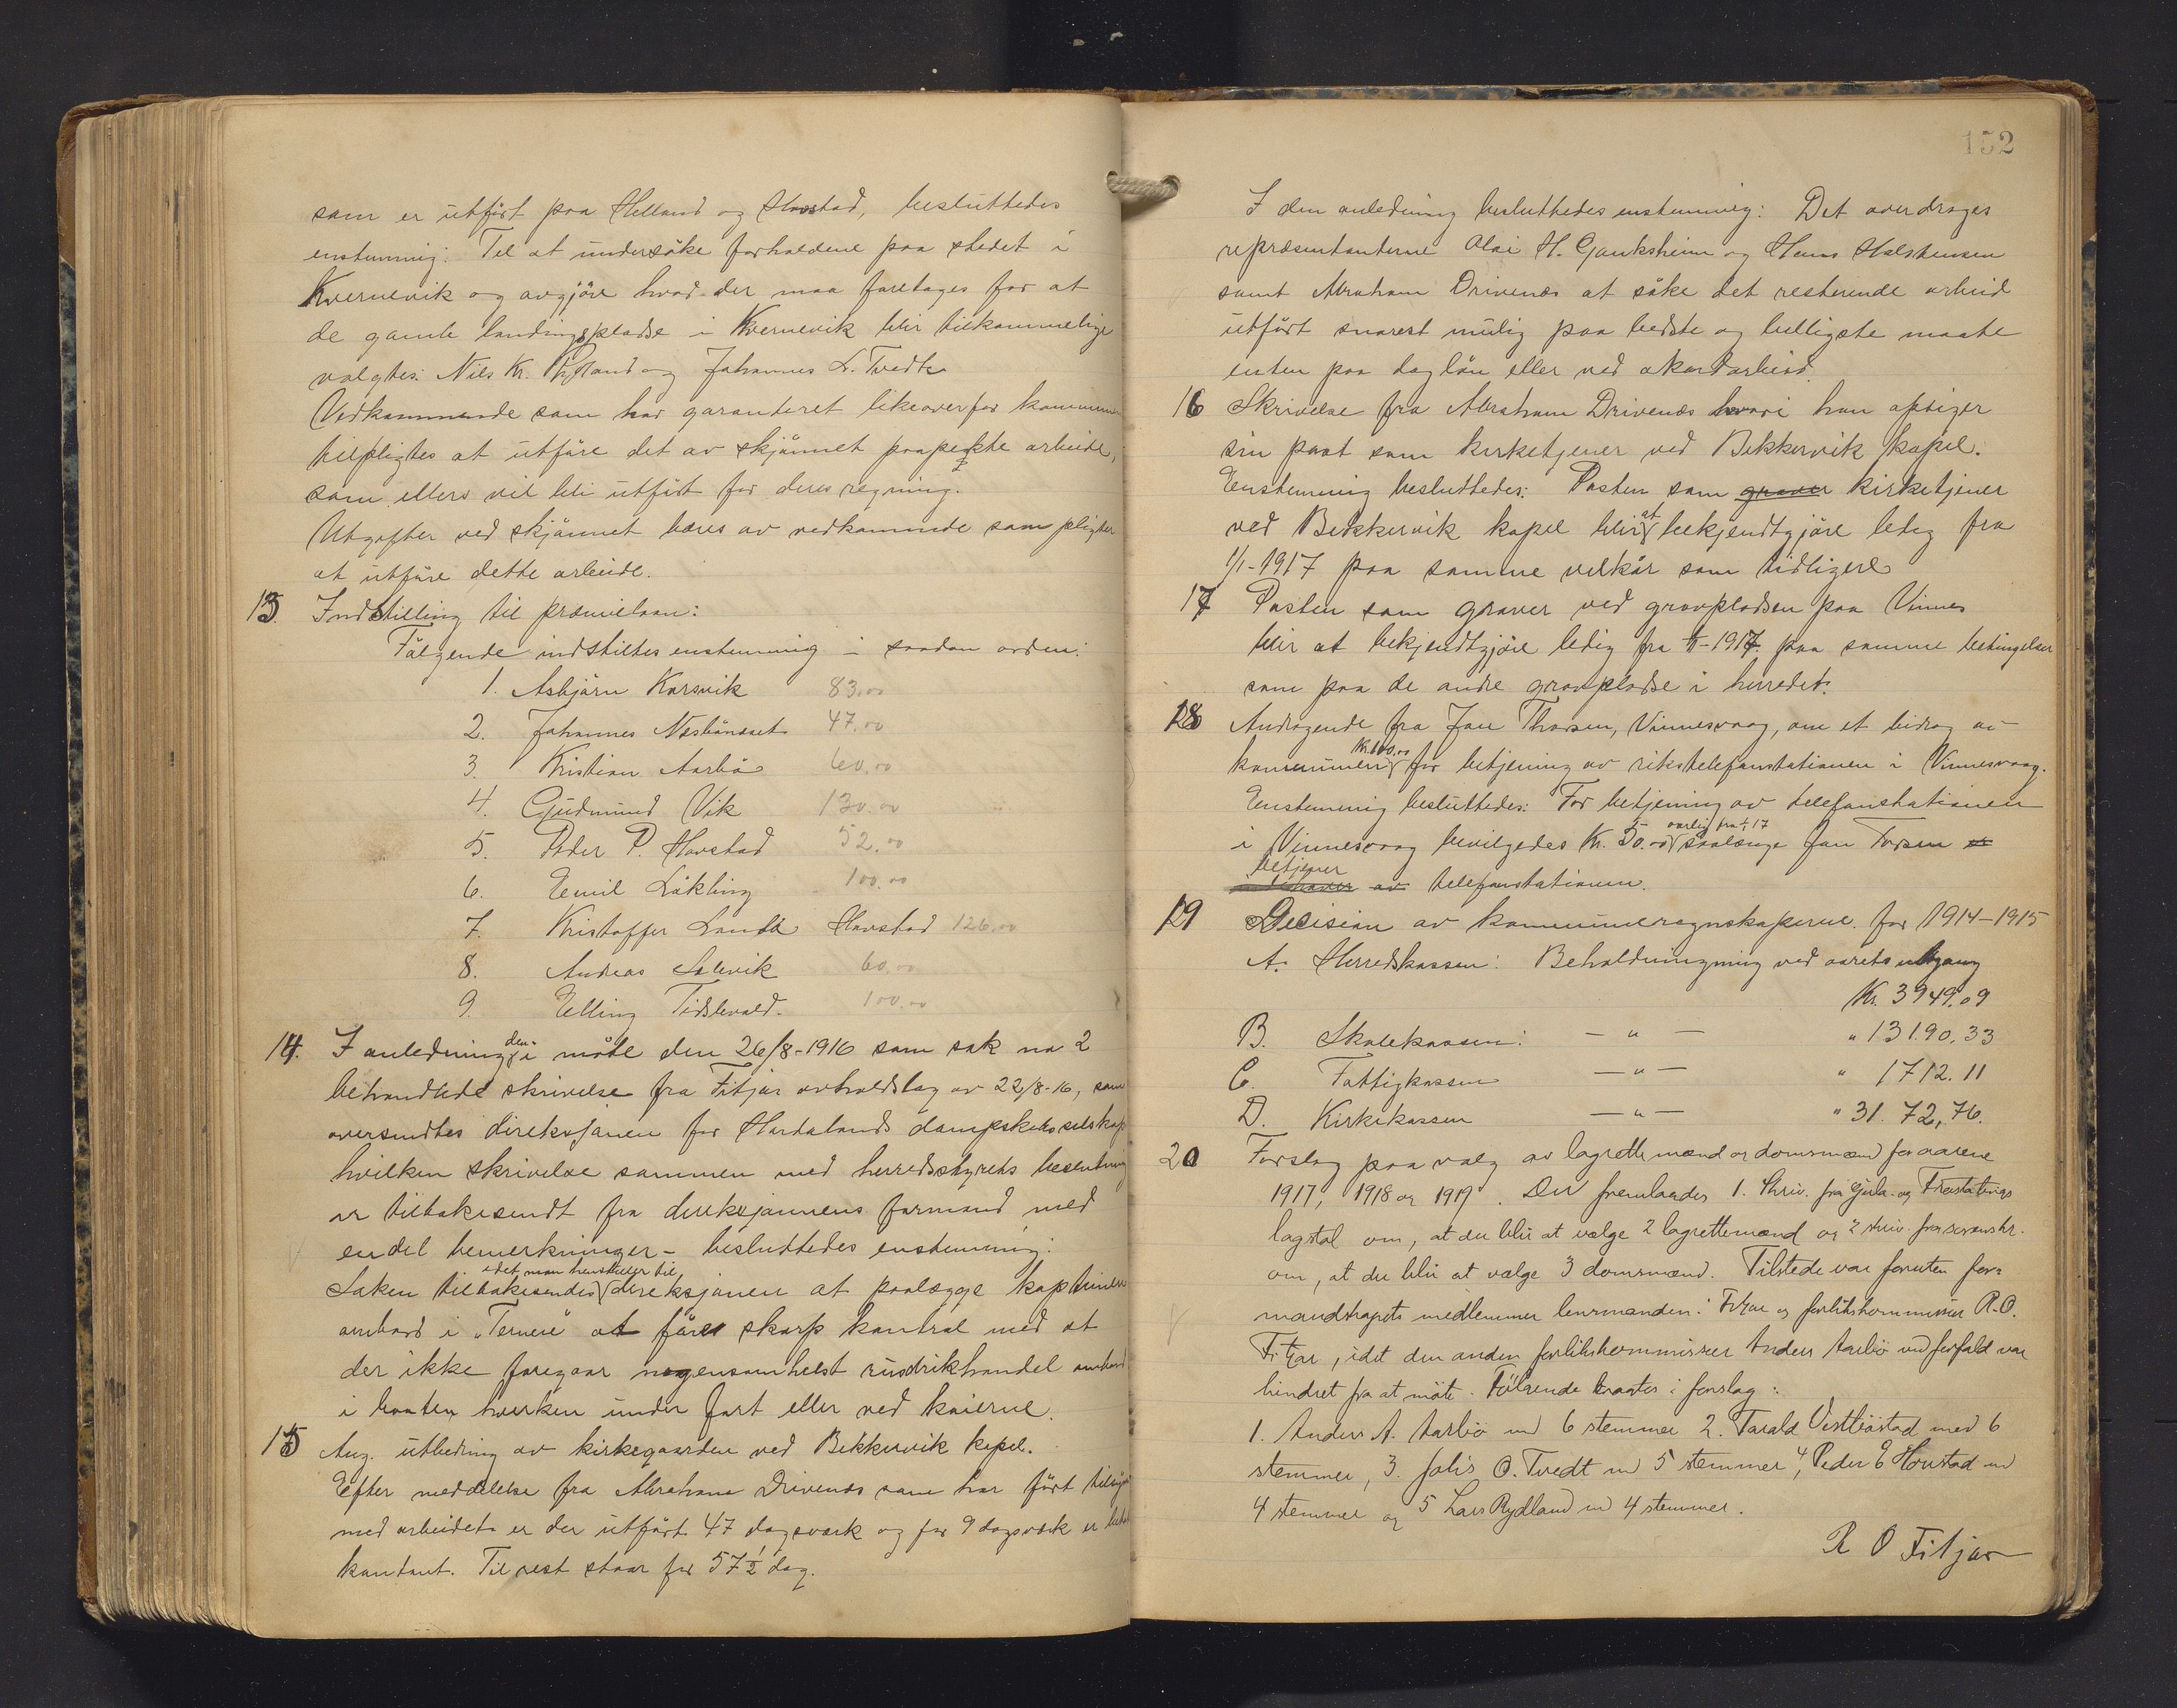 som er utført paa Helland og Hovstad, besluttedes
enstemmig: Til at undersöke forholdene paa stedet i
Kvernevik og avgjöre hvad der maa foretages for at
de gamle landingspladse i Kvernevik blir tilkommelige
valgtes: Nils Kr. Rydland og Johannes L. Tvedte
Vedkommende som har garanteret likeoverfor kommunen
tilpligtes at utföre det av skjönnet paapekte arbeide,
som ellers vil bli utfört for deres regning.
Utgifter ved skjönnet bæres av vedkommende som pligter
at utföre dette arbeide.
13 Indstilling til præmielaan:
Fölgende indstilles enstemmig i saadan orden:
1. Asbjörn Korsvik 83.00
2. Johannes Næsbönaset 47.00
3. Kristian Aarbö 60.00
4. Gudmund Vik 130.00
5. Peder P. Hovstad 52.00
6. Emil Lökling 100.00
7. Kristoffer Landa Hovstad 126.00
8. Andreas Salevik 60.00
9. Elling Tislevold. 100.00
14. I anledning den i möte den 26/8-1916 som sak no 2
behandlede skrivelse fra Fitjar avholdslag av 22/8-16, som
oversendtes direksjonen for Hardalands dampskibsselskap
hvilken skrivelse sammen med herredsstyrets beslutning
er tilbakesendt fra direksjonens formand med
endel bemerkninger - besluttedes enstemmig:
idet man henstiller til
Saken tilbakesendes direksjonen at paalægge kapteinen
ombord i "Ternen" at före skarp kontrol med at
der ikke foregaar nogensomhelst rusdrikhandel ombord
i baaten hverken under fart eller ved kaierne.
15 Ang. utbedring av kirkegaarden ved Bekkervik kapel.
Efter meddelelse fra Abraham Drivenes som har fört tilsyn
med arbeidet er der utfört 47 dagsverk og for 9 dagsverk er
kontant. Til rest staar for 57 1/2 dag.
152
I den anledning besluttedes enstemmig: Det overdrages
repræsentanterne Olai H. Gauksheim og Hans Halstensen
samt Abraham Drivenes at söke det resterende arbeid
utfört snarest mulig paa bedste og billigste maate
enten paa daglön eller ved akordarbeid.
16 Skrivelse fra Abraham Drivenes hvori han opsiger
sin post som kirketjener ved Bekkervik kapel.
Enstemmig besluttedes: Posten som graver kirketjener
ved Bekkervik kapel blir at bekjendtgjöre ledig fra
1/1-1917 paa samme vilkår som tidligere
17 Posten som graver ved gravpladsen paa Vinnes
blir at bekjendtgjöre ledig fra 1/1-1917. paa samme betingelser
som paa de andre gravpladse i herredet.
18 Andragende fra Jan Thorsen, Vinnesvaag, om et bidrag av
kommunen Kr. 100.00 for betjening av rikstelefonstationen i Vinnesvaag.
Enstemmig besluttedes: For betjening av telefonstationen
i Vinnesvaag bevilgedes Kr. 50.00 aarlig fra 1/1 17 saalænge Jan Torsen
betjener
av telefonstationen.
19 Decision av kommuneregnskaperne for 1914-1915
A. Herredskassen: Beholdningning ved aarets utgang
Kr. 3949.09
B. Skolekassen: — " — " 13190.33
C. Fattigkassen — " — " 1712.11
D. Kirkekassen — " — " 31.72,76.
20 Forslag paa valg av lagrettemænd og domsmænd for aarene
1917, 1918 og 1919. Der fremlaaes 1. Skriv. fra Gula- og Frostatings
lagstol om, at der blir at vælge 2 lagrettemænd og 2 skriv. fra sorenskr.
om, at der blir at vælge 3 domsmænd. Tilstede var foruten for-
mandskapets medlemmer lensmanden i Fitjar og forlikskommissær R.O.
Fitjar, idet den anden forlikskommissær Anders Aarbö ved forfald var
hindret fra at möte. Fölgende bragtes i forslag:
1. Anders A. Aarbö m 6 stemmer 2. Tarald Vestböstad med 6
stemmer, 3. Johs O. Tvedt m 5 stemmer 4, Peder E Hovstad m
4 stemmer og 5 Lars Rydland m 4 stemmer.
R O Fitjar